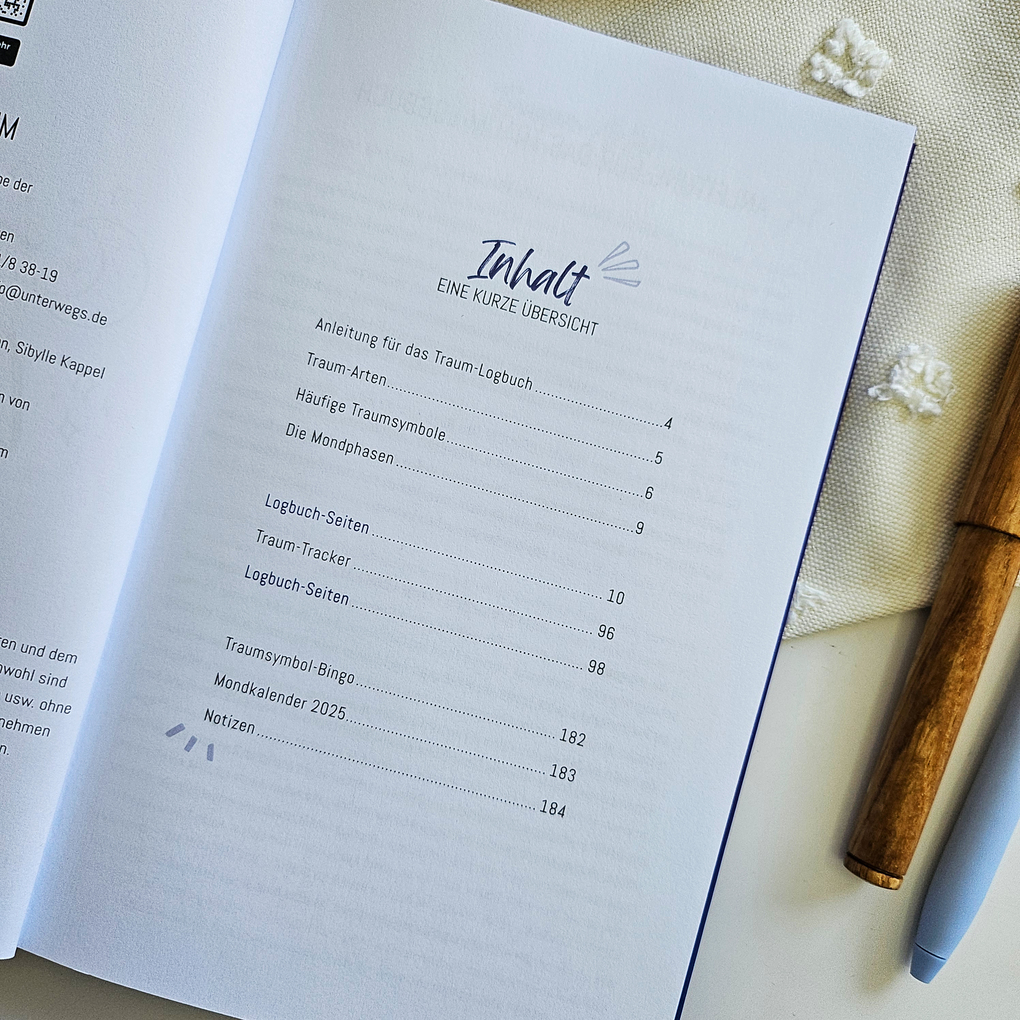 hr
M
e der
en
/8 38-19
o@unterwegs.de
n, Sibylle Kappel
n von
m
en und dem
wohl sind
usw. ohne
nehmen
n.
Inhalt
EINE KURZE ÜBERSICHT
Anleitung für das Traum-Logbuch 4
Traum-Arten 5
Häufige Traumsymbole 6
Die Mondphasen 9
Logbuch-Seiten 10
Traum-Tracker 96
Logbuch-Seiten 98
Traumsymbol-Bingo 182
Mondkalender 2025 183
Notizen 184